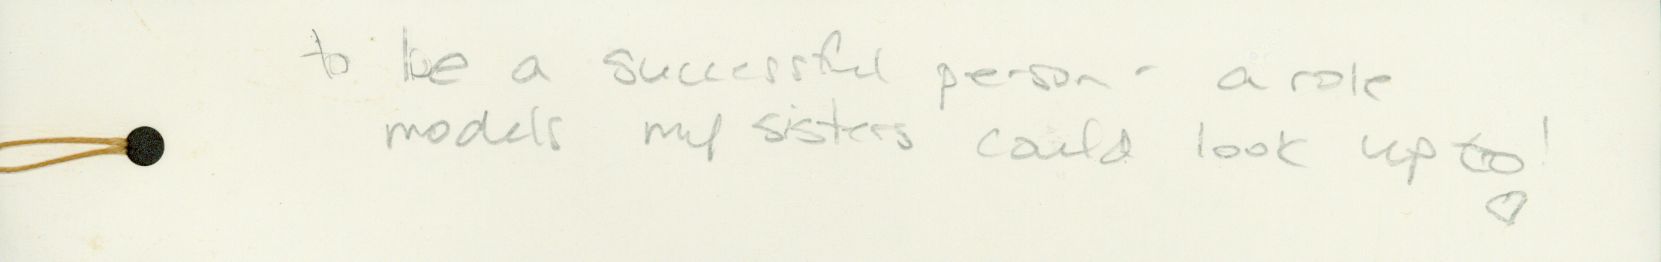 to be a successful person - a role
models my sisters could look up to!
♡